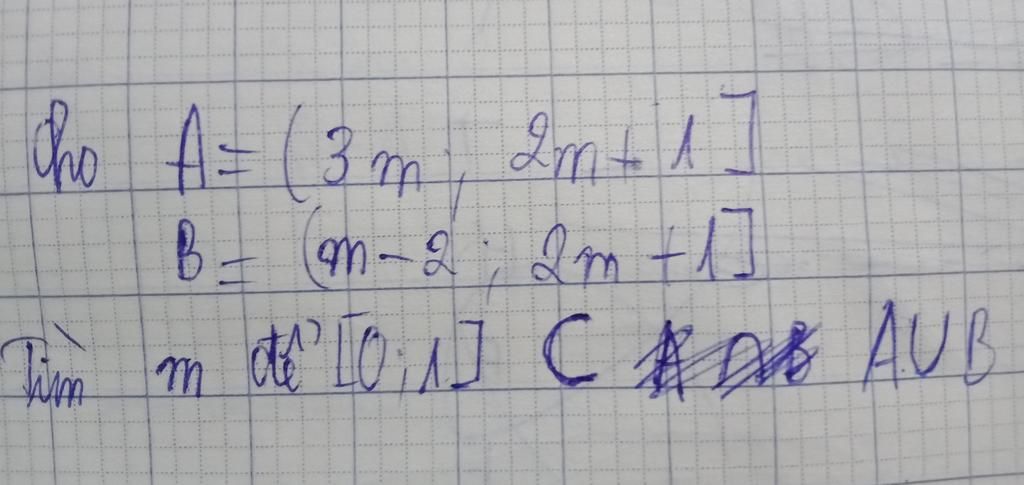 Cho A = (3m; 2m+1]
B = (m-2; 2m+1]
Tìm m để [0;1] ⊂ A∪B